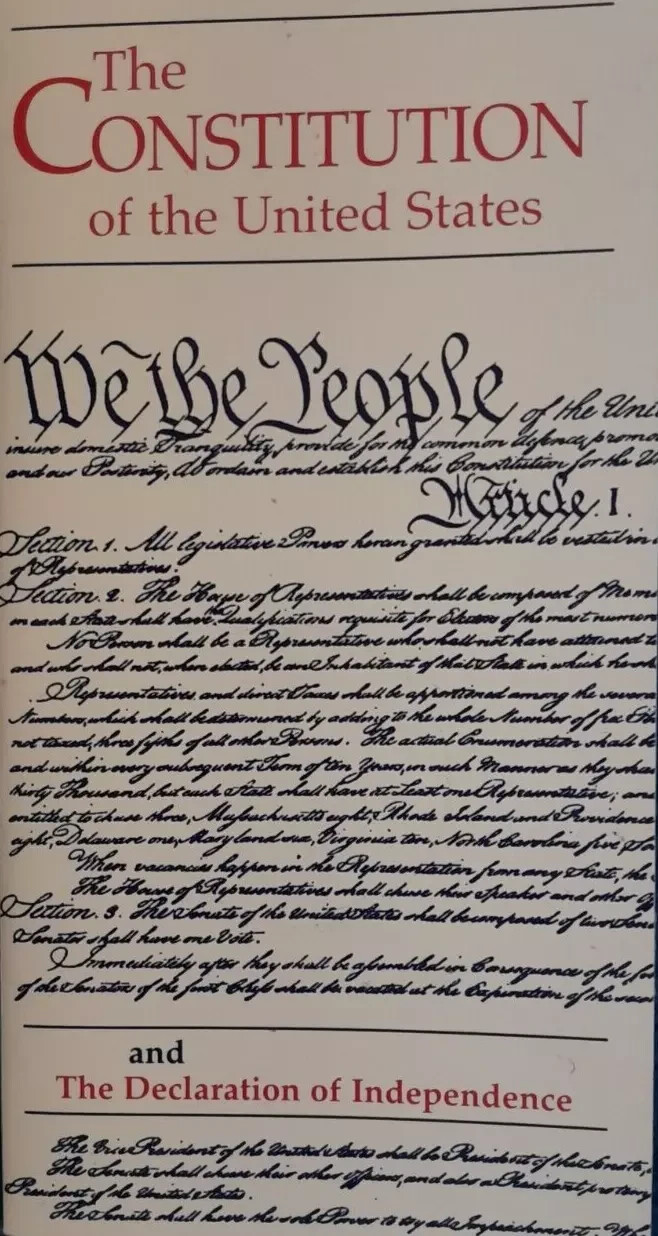 The
CONSTITUTION
of the United States
We the People of the Uni
insure domestic Tranquility, provide for the common defence, promo
and our Posterity, do ordain and establish this Constitution for the Un
Article. I.
Section. 1. All legislative Powers herein granted shall be vested in
of Representatives.
Section. 2. The House of Representatives shall be composed of Mem
in each State shall have the Qualifications requisite for Electors of the most numero
No Person shall be a Representative who shall not have attained t
and who shall not, when elected, be an Inhabitant of that State in which he sh
Representatives and direct Taxes shall be apportioned among the severa
Numbers, which shall be determined by adding to the whole Number of free
not taxed, three fifths of all other Persons. The actual Enumeration shall be
and within every subsequent Term of ten Years, in such Manner as they shal
thirty Thousand, but each State shall have at Least one Representative; an
entitled to chuse three, Massachusetts eight, Rhode Island and Providence
eight, Delaware one, Maryland six, Virginia ten, North Carolina five, So
When vacancies happen in the Representation from any State, the
The House of Representatives shall chuse their Speaker and other Of
Section. 3. The Senate of the United States shall be composed of two Sena
Senator shall have one Vote.
Immediately after they shall be assembled in Consequence of the fir
of the Senators of the first Class shall be vacated at the Expiration of the seco
and
The Declaration of Independence
The Vice President of the United States shall be President of the Senate,
The Senate shall chuse their other Officers, and also a President pro temp
President of the United States.
The Senate shall have the sole Power to try all Impeachments. Whe